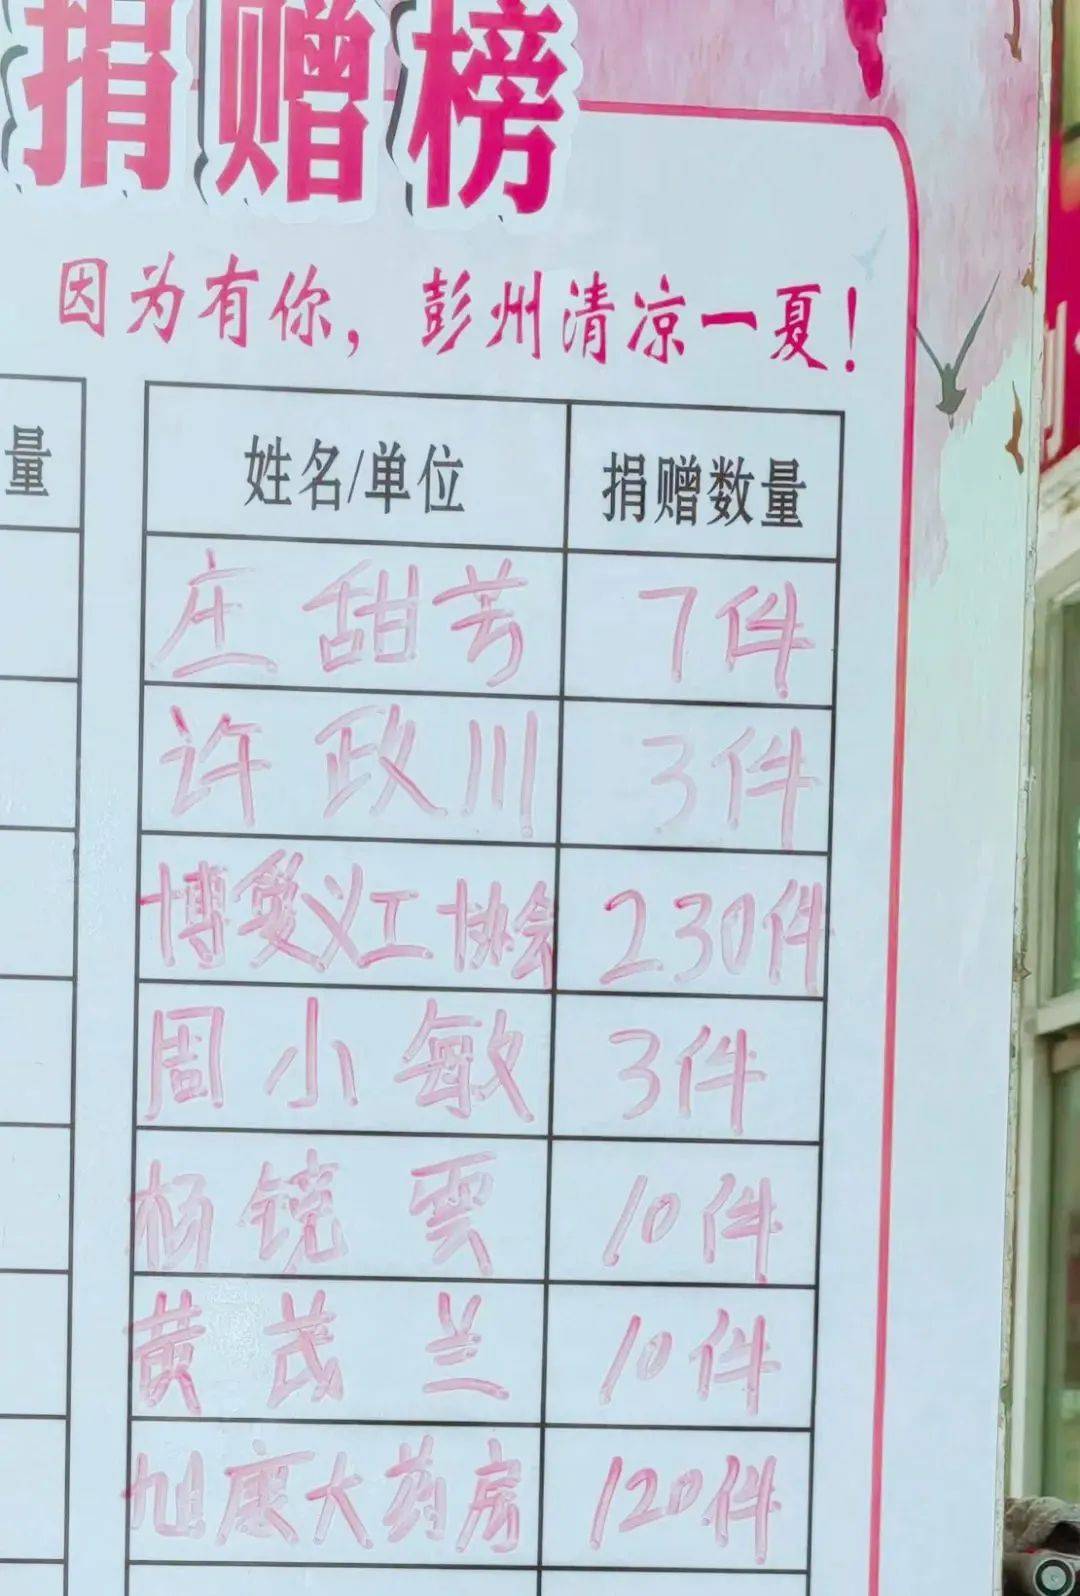 捐赠榜
因为有你，彭州清凉一夏！
量
姓名/单位 捐赠数量
庄甜芳 7件
许政川 3件
博爱义工协会 230件
周小敏 3件
杨镜雲 10件
黄茂兰 10件
旭康大药房 120件